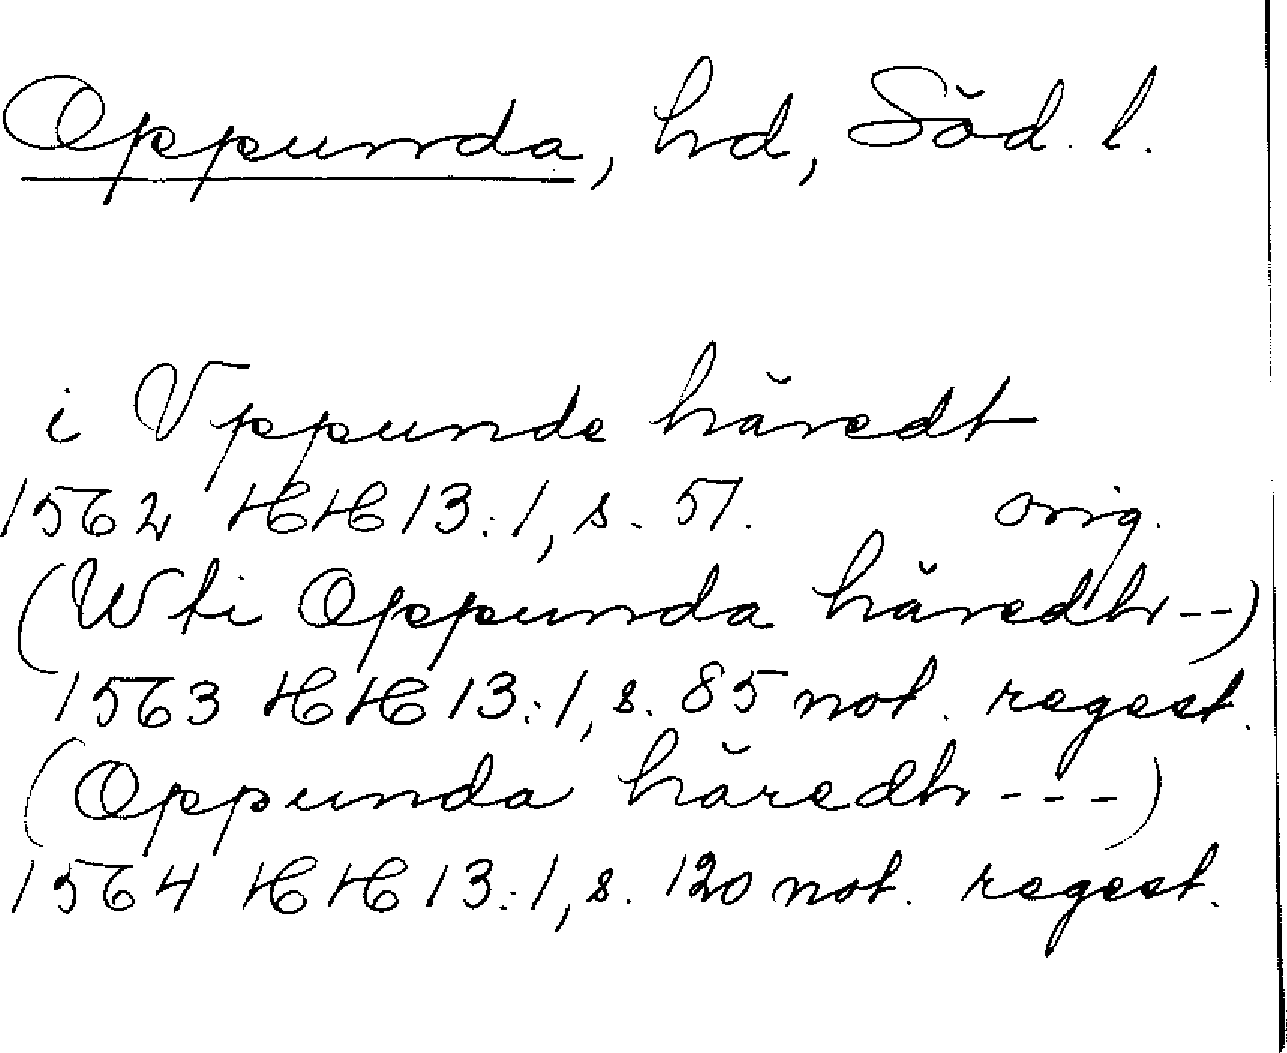 Oppunda, hd, Söd. l.
i Vppunde häredt
1562 HH 13:1, s. 51. orig.
(Wti Oppunda häredh--)
1563 HH 13:1, s. 85 not. regest.
(Oppunda häredh---)
1564 HH 13:1, s. 120 not. regest.